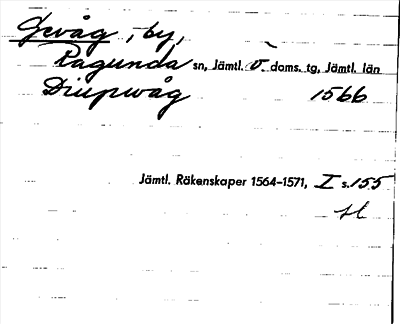 Gevåg, by,
Ragunda sn, Jämtl. v. doms. tg, Jämtl. län
Diupwåg 1566
Jämtl. Räkenskaper 1564-1571, I s. 155